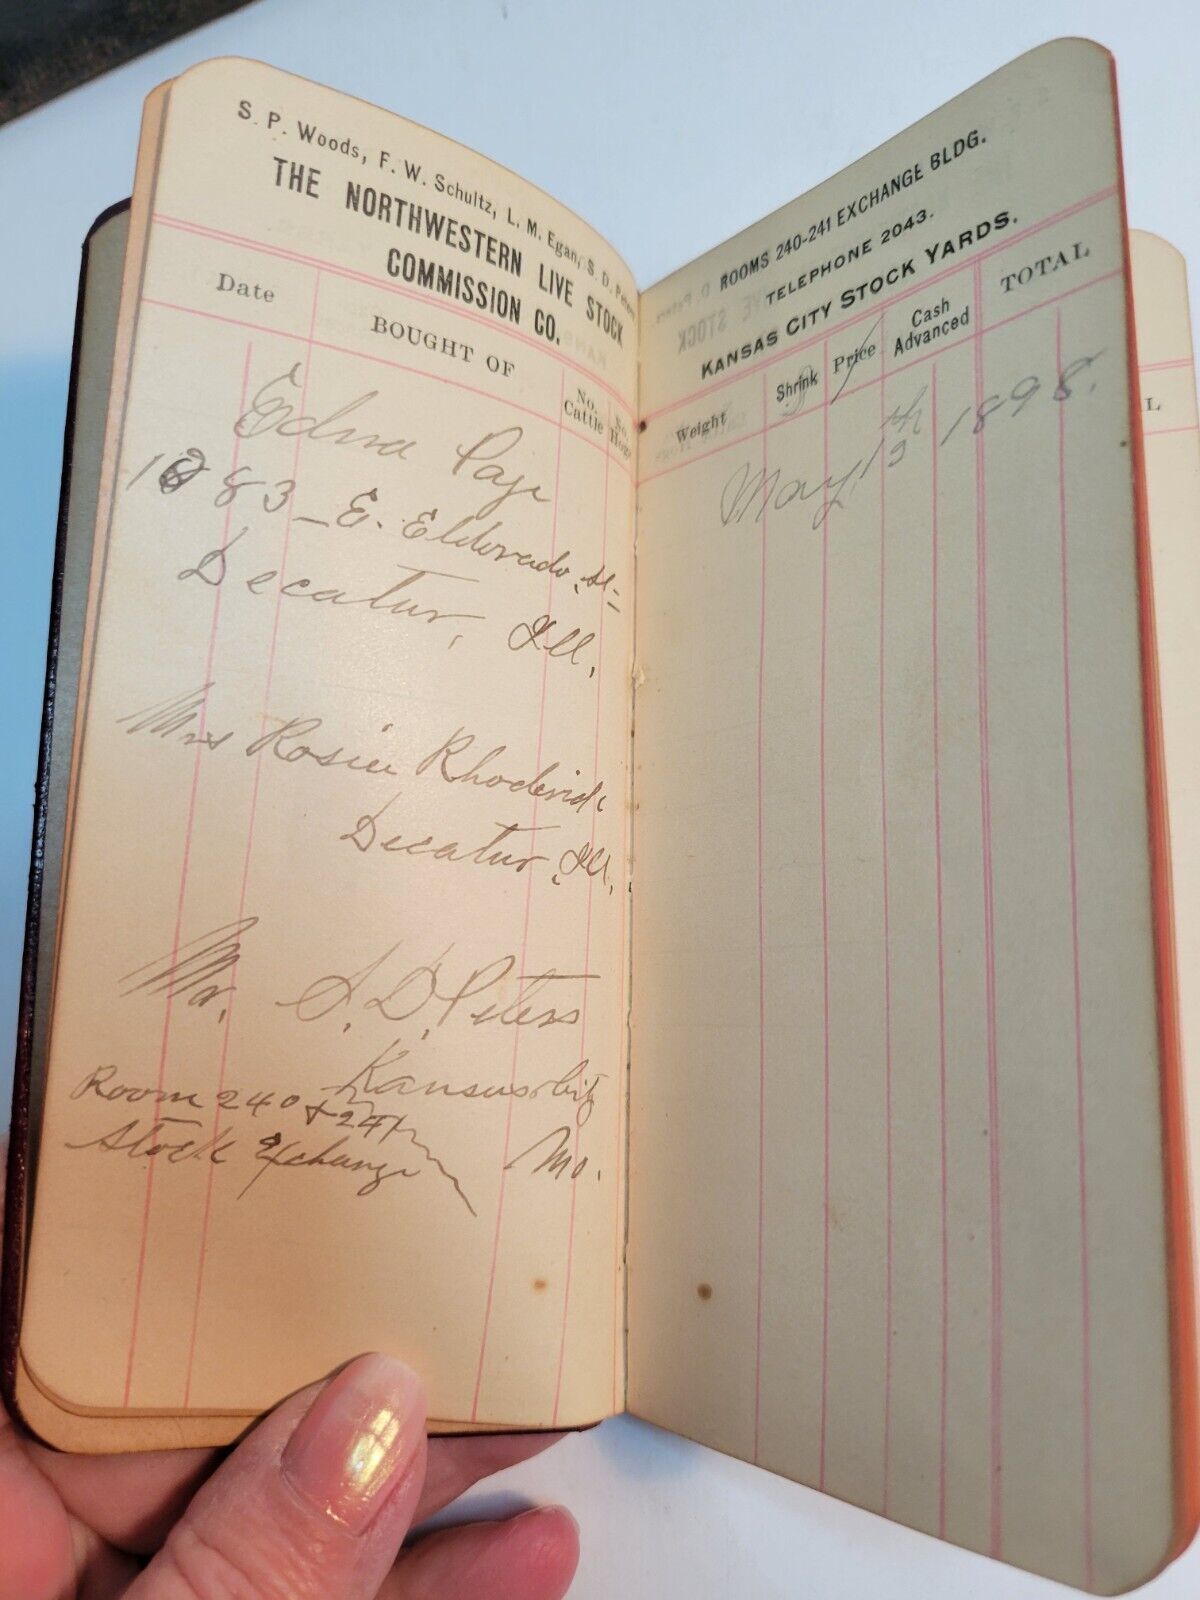 S. P. Woods, F. W. Schultz, L. M. Egan, S. D. Peters
THE NORTHWESTERN LIVE STOCK
COMMISSION CO.
Date
BOUGHT OF
No. Cattle
No. Hogs
Edna Page
1083 - E. Eldorado St.
Decatur, Ill.
Mrs Rosier Rhoderick
Decatur, Ill.
Mr. S. D. Peters
Kansas City
Mo.
Room 240 & 241
Stock Exchange
ROOMS 240-241 EXCHANGE BLDG.
TELEPHONE 2043.
KANSAS CITY STOCK YARDS.
Weight
Shrink
Price
Cash Advanced
TOTAL
May 13th 1898.
L